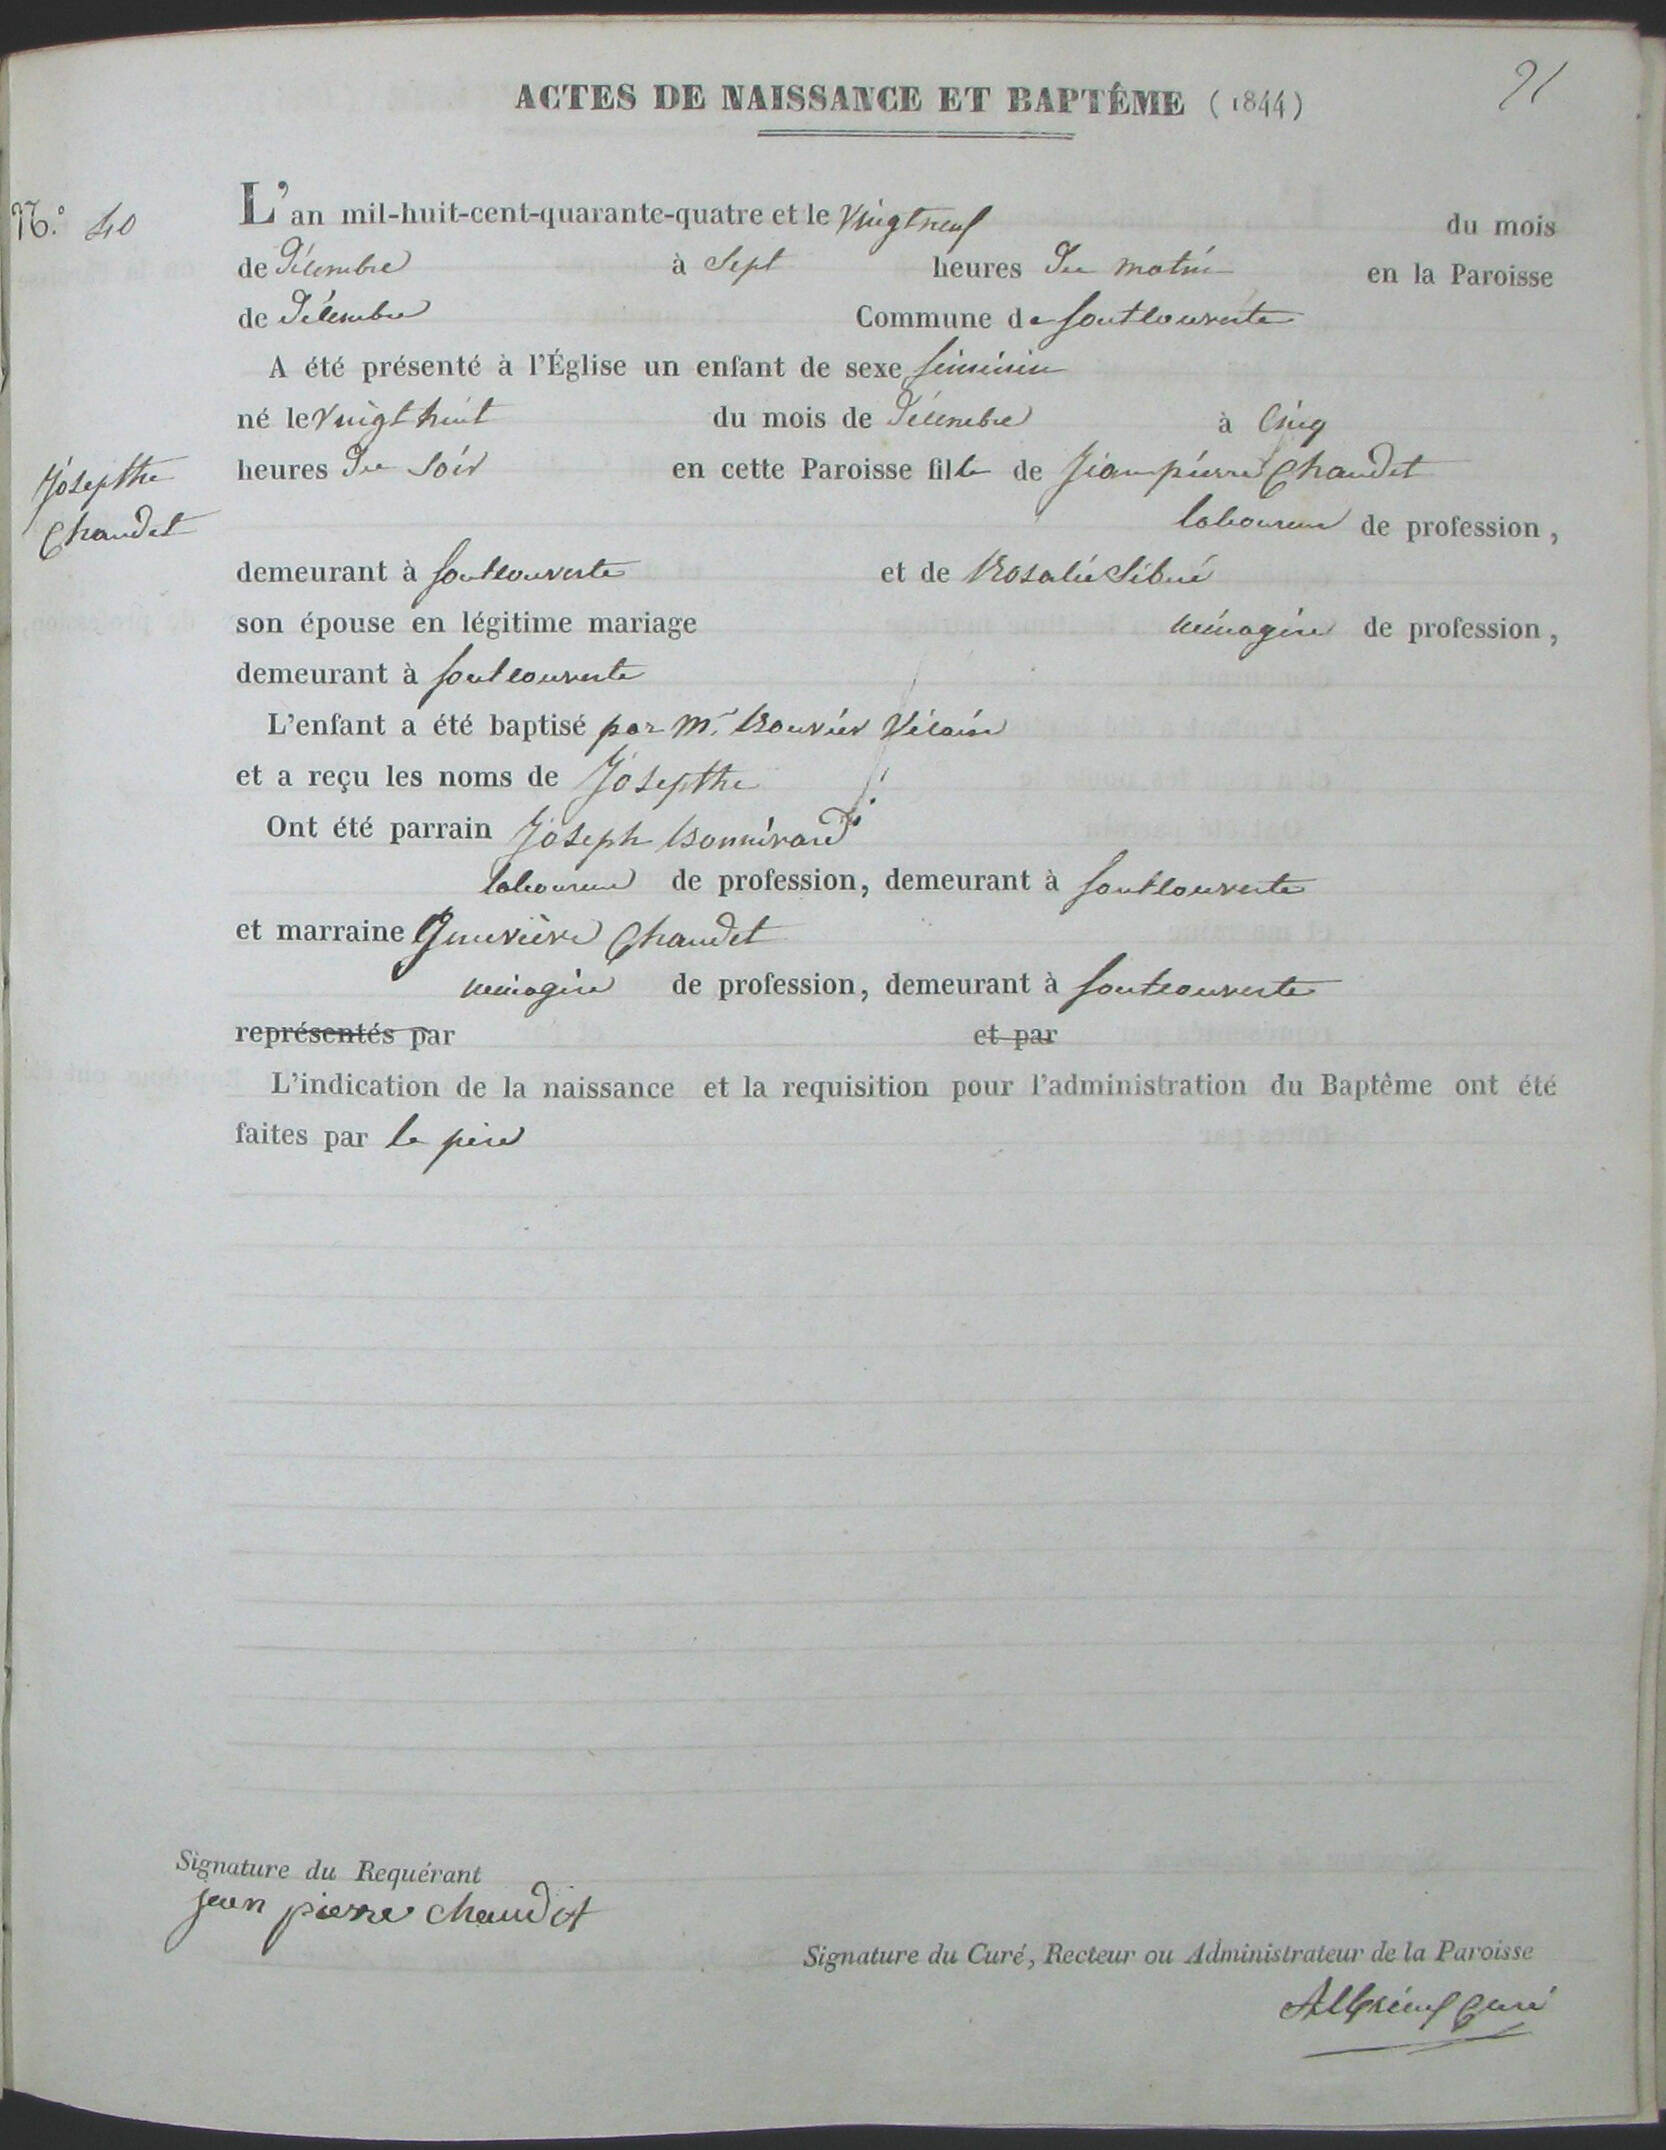 ACTES DE NAISSANCE ET BAPTÊME (1844)
91
N.° 40
L'an mil-huit-cent-quarante-quatre et le vingt neuf du mois
de Décembre à Sept heures du matin en la Paroisse
de Décembre Commune de Fontcouverte
A été présenté à l'Église un enfant de sexe féminin
né le vingt huit du mois de Décembre à Cinq
Josepthe
Chaudet
heures du soir en cette Paroisse fille de Jean pierre Chaudet
laboureur de profession,
demeurant à fontcouverte et de Rosalie
son épouse en légitime mariage ménagère de profession,
demeurant à fontcouverte
L'enfant a été baptisé par Mr. Bouvier Vicaire
et a reçu les noms de Josepthe
Ont été parrain Joseph Bonnivard
laboureur de profession, demeurant à fontcouverte
et marraine Genevieve Chaudet
ménagère de profession, demeurant à fontcouverte
représentés par et par
L'indication de la naissance et la requisition pour l'administration du Baptême ont été
faites par le père
Signature du Requérant
jean pierre chaudet
Signature du Curé, Recteur ou Administrateur de la Paroisse
Curé